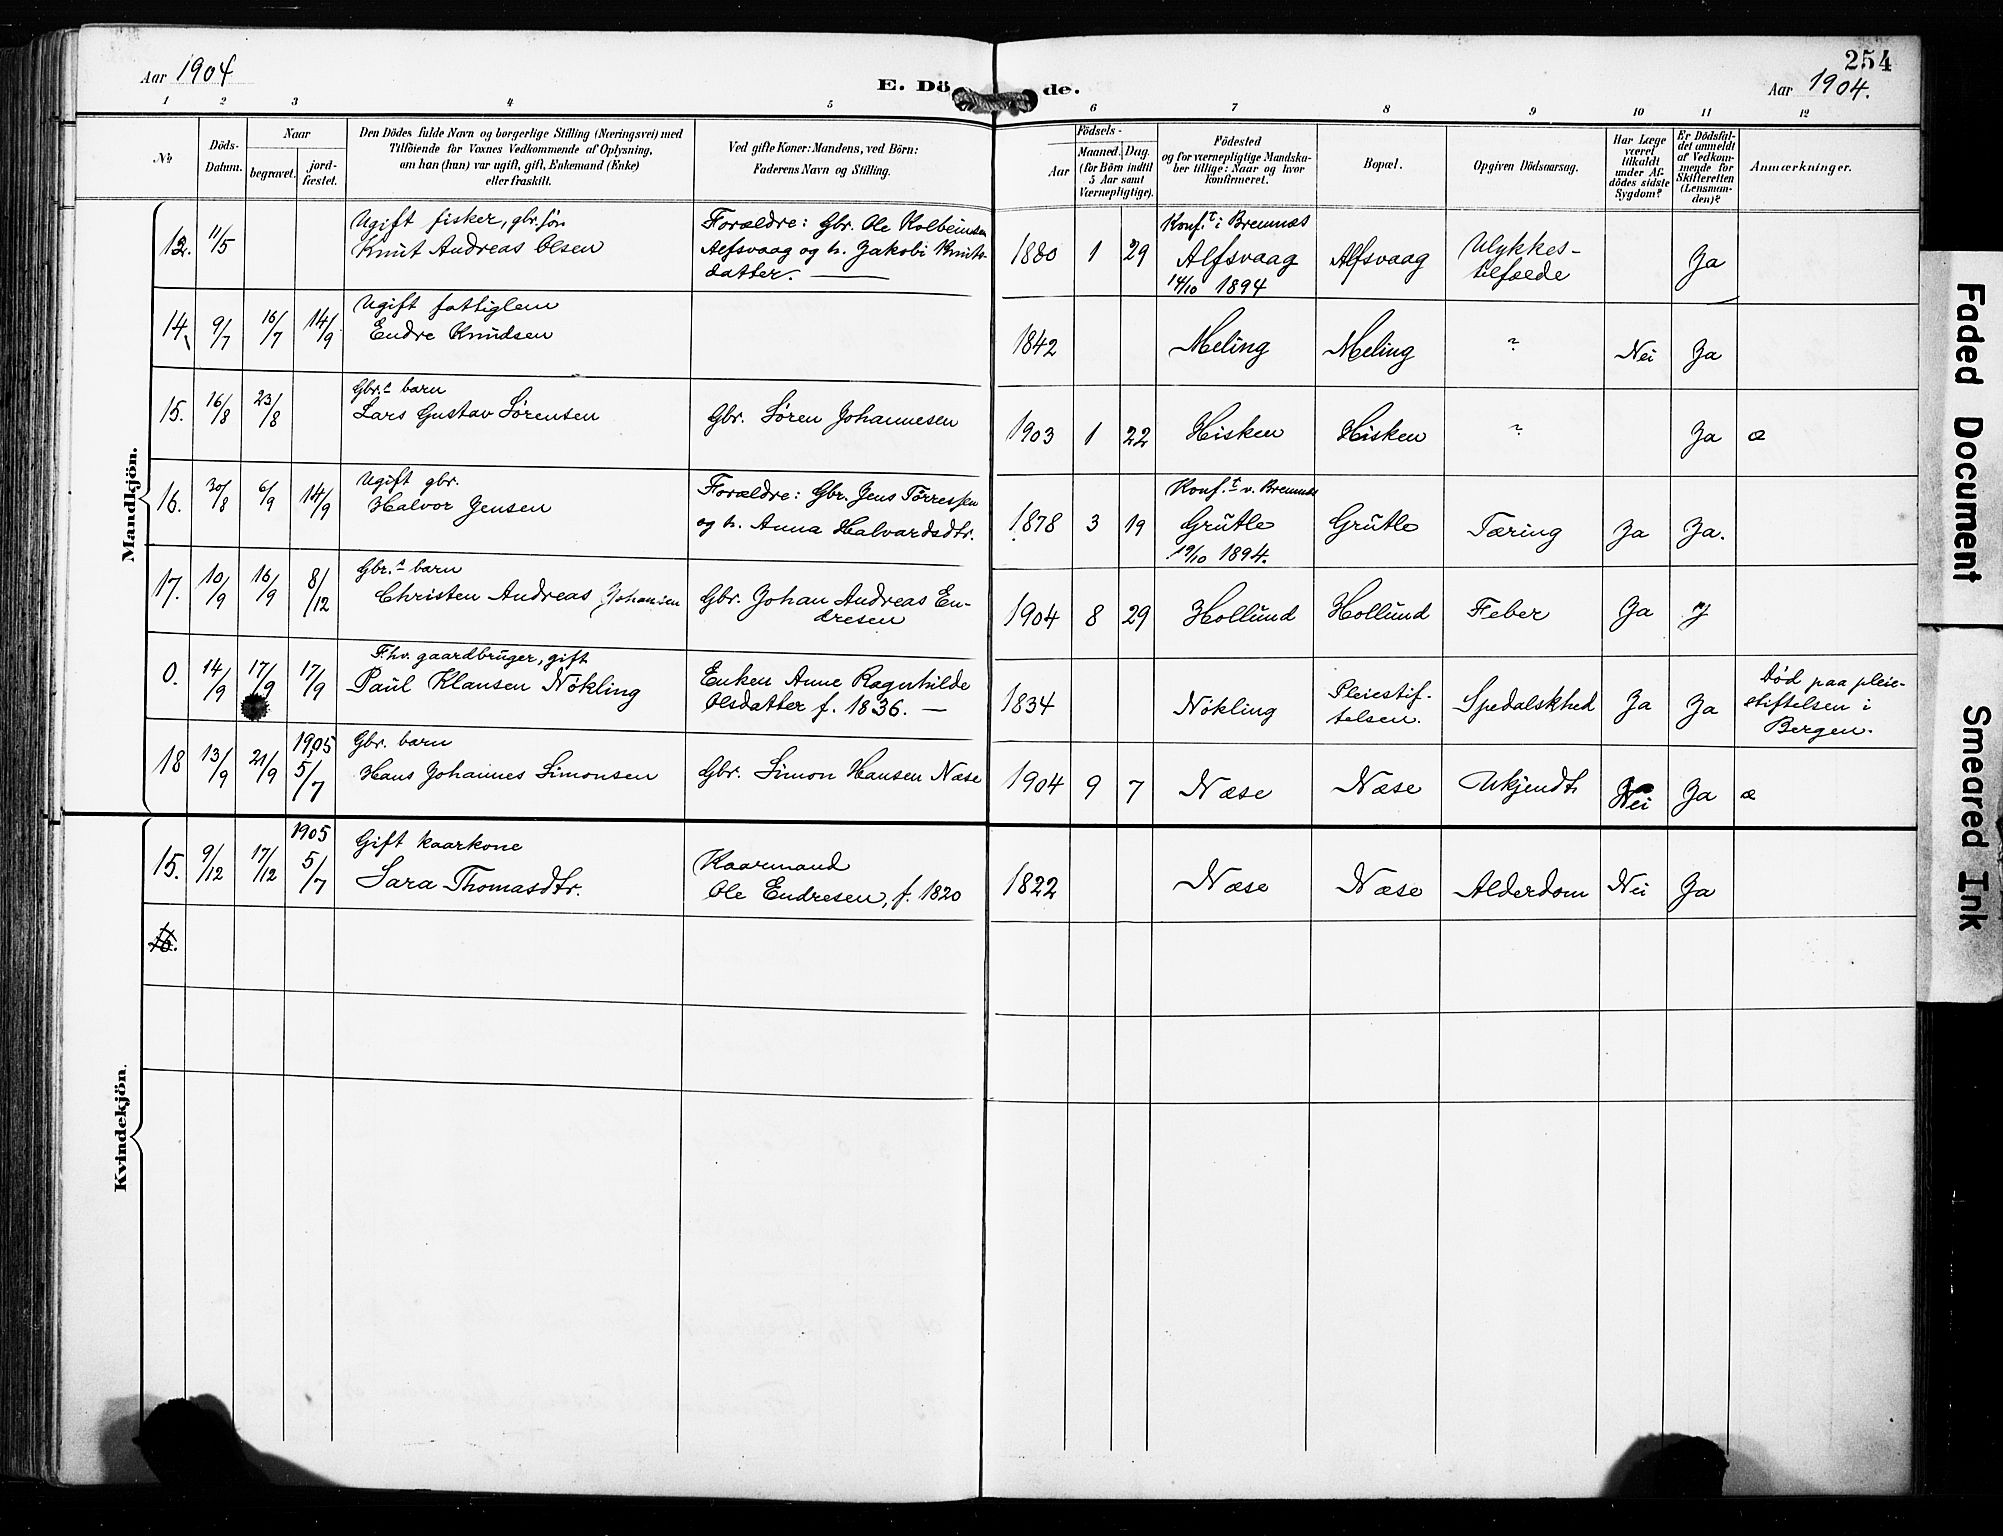 254
Aar 1904
E. Dö de.
Aar 1904.
1 2 3 4 5 6 7 8 9 10 11 12
No
Döds-
Datum.
Naar
begravet.
jord-
fæstet.
Den Dödes fulde Navn og borgerlige Stilling (Næringsvei) med
Tilföiende for Voxnes Vedkommende af Oplysning,
om han (hun) var ugift, gift, Enkemand (Enke)
eller fraskilt.
Ved gifte Koner: Mandens, ved Börn:
Faderens Navn og Stilling.
Födsels-
Aar
Maaned. Dag.
(for Börn indtil
5 Aar samt
Værnepligtige).
Födested
og for værnepligtige Mandska-
ber tillige: Naar og hvor
konfirmeret.
Bopæl.
Opgiven Dödsaarsag.
Har Læge
været
tilkaldt
under Af-
dödes sidste
Sygdom?
Er Dödsfal-
det anmeldt
af Vedkom-
mende for
Skifteretten
(Lensman-
den)?
Anmærkninger.
Mandkjön.
12. 11/5
Ugift fisker, gbr. søn
Knut Andreas Olsen
Forældre: Gbr. Ole Kolbeinsen
Alfsvaag og h. Jakobi Knuts-
datter.
1880 1 29
Konf.t i Bremnæs
Alfsvaag
14/10 1894
Alfsvaag
Ulykkes-
tilfælde
Ja
14. 9/7 16/7 14/9
Ugift fattiglem
Endre Knudsen
1842
Meling
Meling
?
Nei Ja
15. 16/8 23/8
Gbr.s barn
Lars Gustav Sørensen
Gbr. Søren Johannesen
1903 1 22
Hisken
Hisken
?
Ja æ
16. 30/8 6/9 14/9
Ugift gbr.
Halvor Jensen
Forældre: Gbr. Jens Tørressen
og h. Anna Halvardsdtr.
1878 3 19
Konf.t v. Bremnæs
Grutle
19/10 1894.
Grutle
Tæring
Ja Ja.
17. 10/9 16/9 8/12
Gbr.s barn
Christen Andreas Johansen
Gbr. Johan Andreas En-
dresen
1904 8 29
Hollund
Hollund
Feber
Ja
0. 14/9 17/9 17/9
F.hv. gaardbruger, gift
Paul Klausen Nökling
Enken Anne Ragnhilde
Olsdatter f. 1836.
1834
Nökling
Pleiestif-
telsen.
Spedalskhed
Ja Ja
Død paa pleie-
stiftelsen i
Bergen.
18 13/9 21/9 1905 5/7
Gbr. barn
Hans Johannes Simonsen
Gbr. Simon Hansen Næse
1904 9 7
Næse
Næse
Ukjendt
Nei Ja æ
Kvindekjön.
15. 9/12 17/12 1905 5/7
Gift kaarkone
Sara Thomasdtr.
Kaarmand
Ole Endresen, f. 1820
1822
Næse
Næse
Alderdom
Nei Ja
16.
Faded Document
Smeared Ink